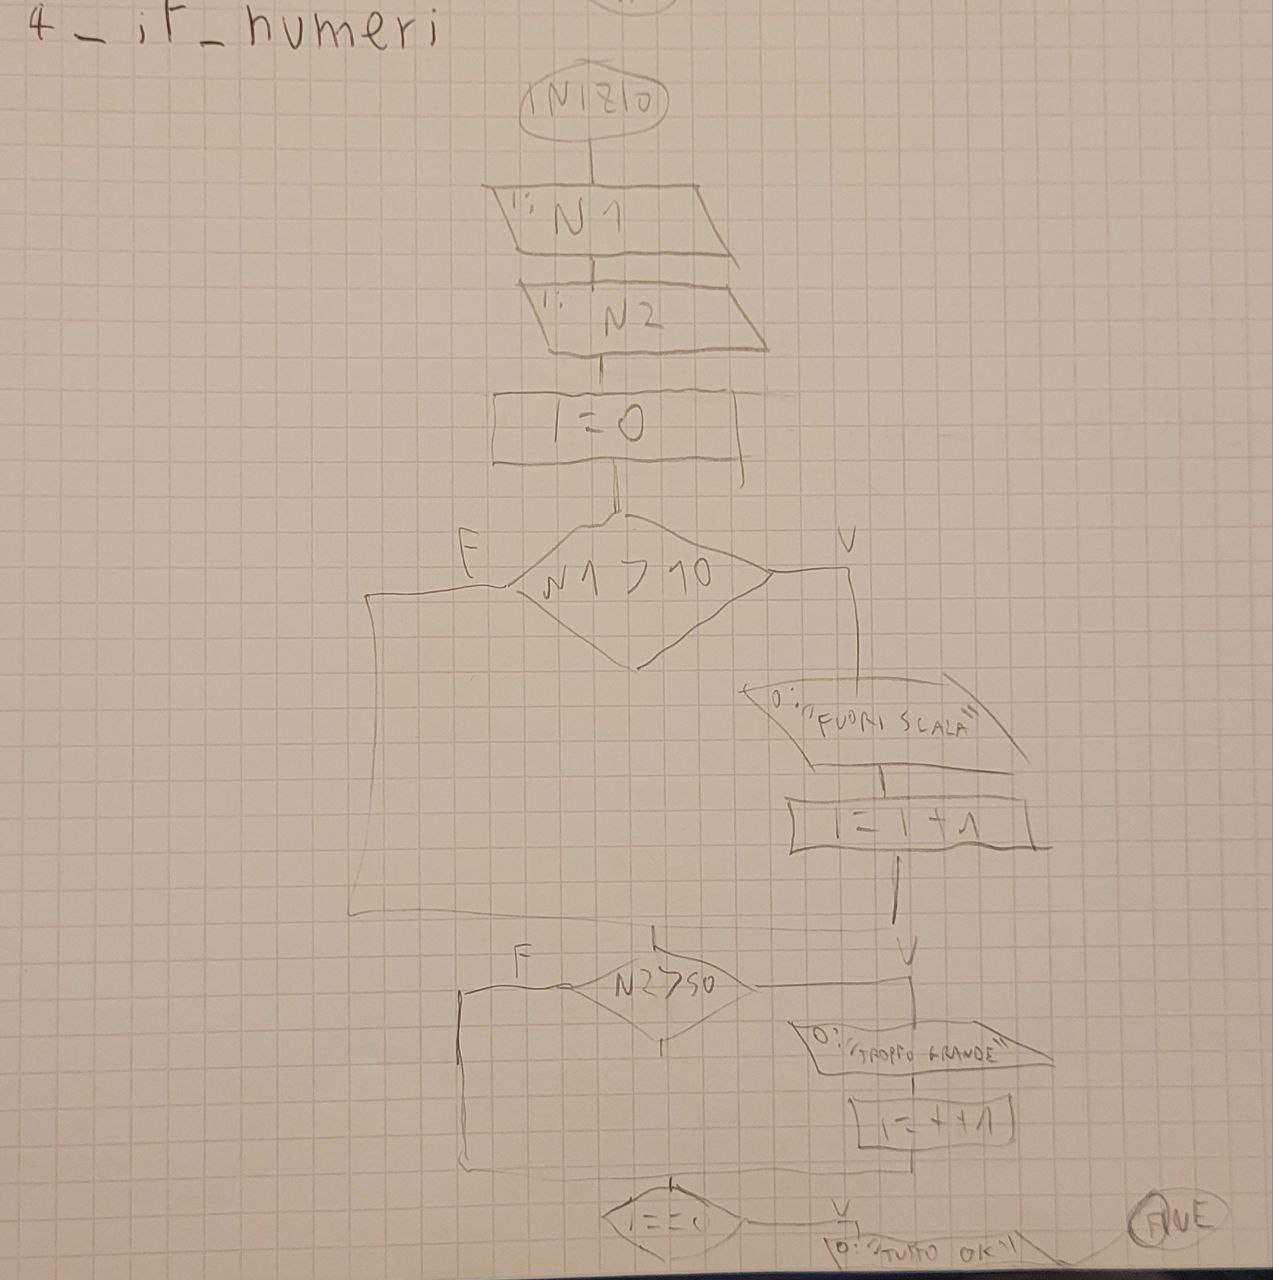 4_if_numeri
INIZIO
I: N1
I: N2
I = 0
F
V
N1 > 10
O: "FUORI SCALA"
I = I + 1
F
V
N2 > 50
O: "TROPPO GRANDE"
I = ++1
I == 0
V
O: "TUTTO OK"
FINE